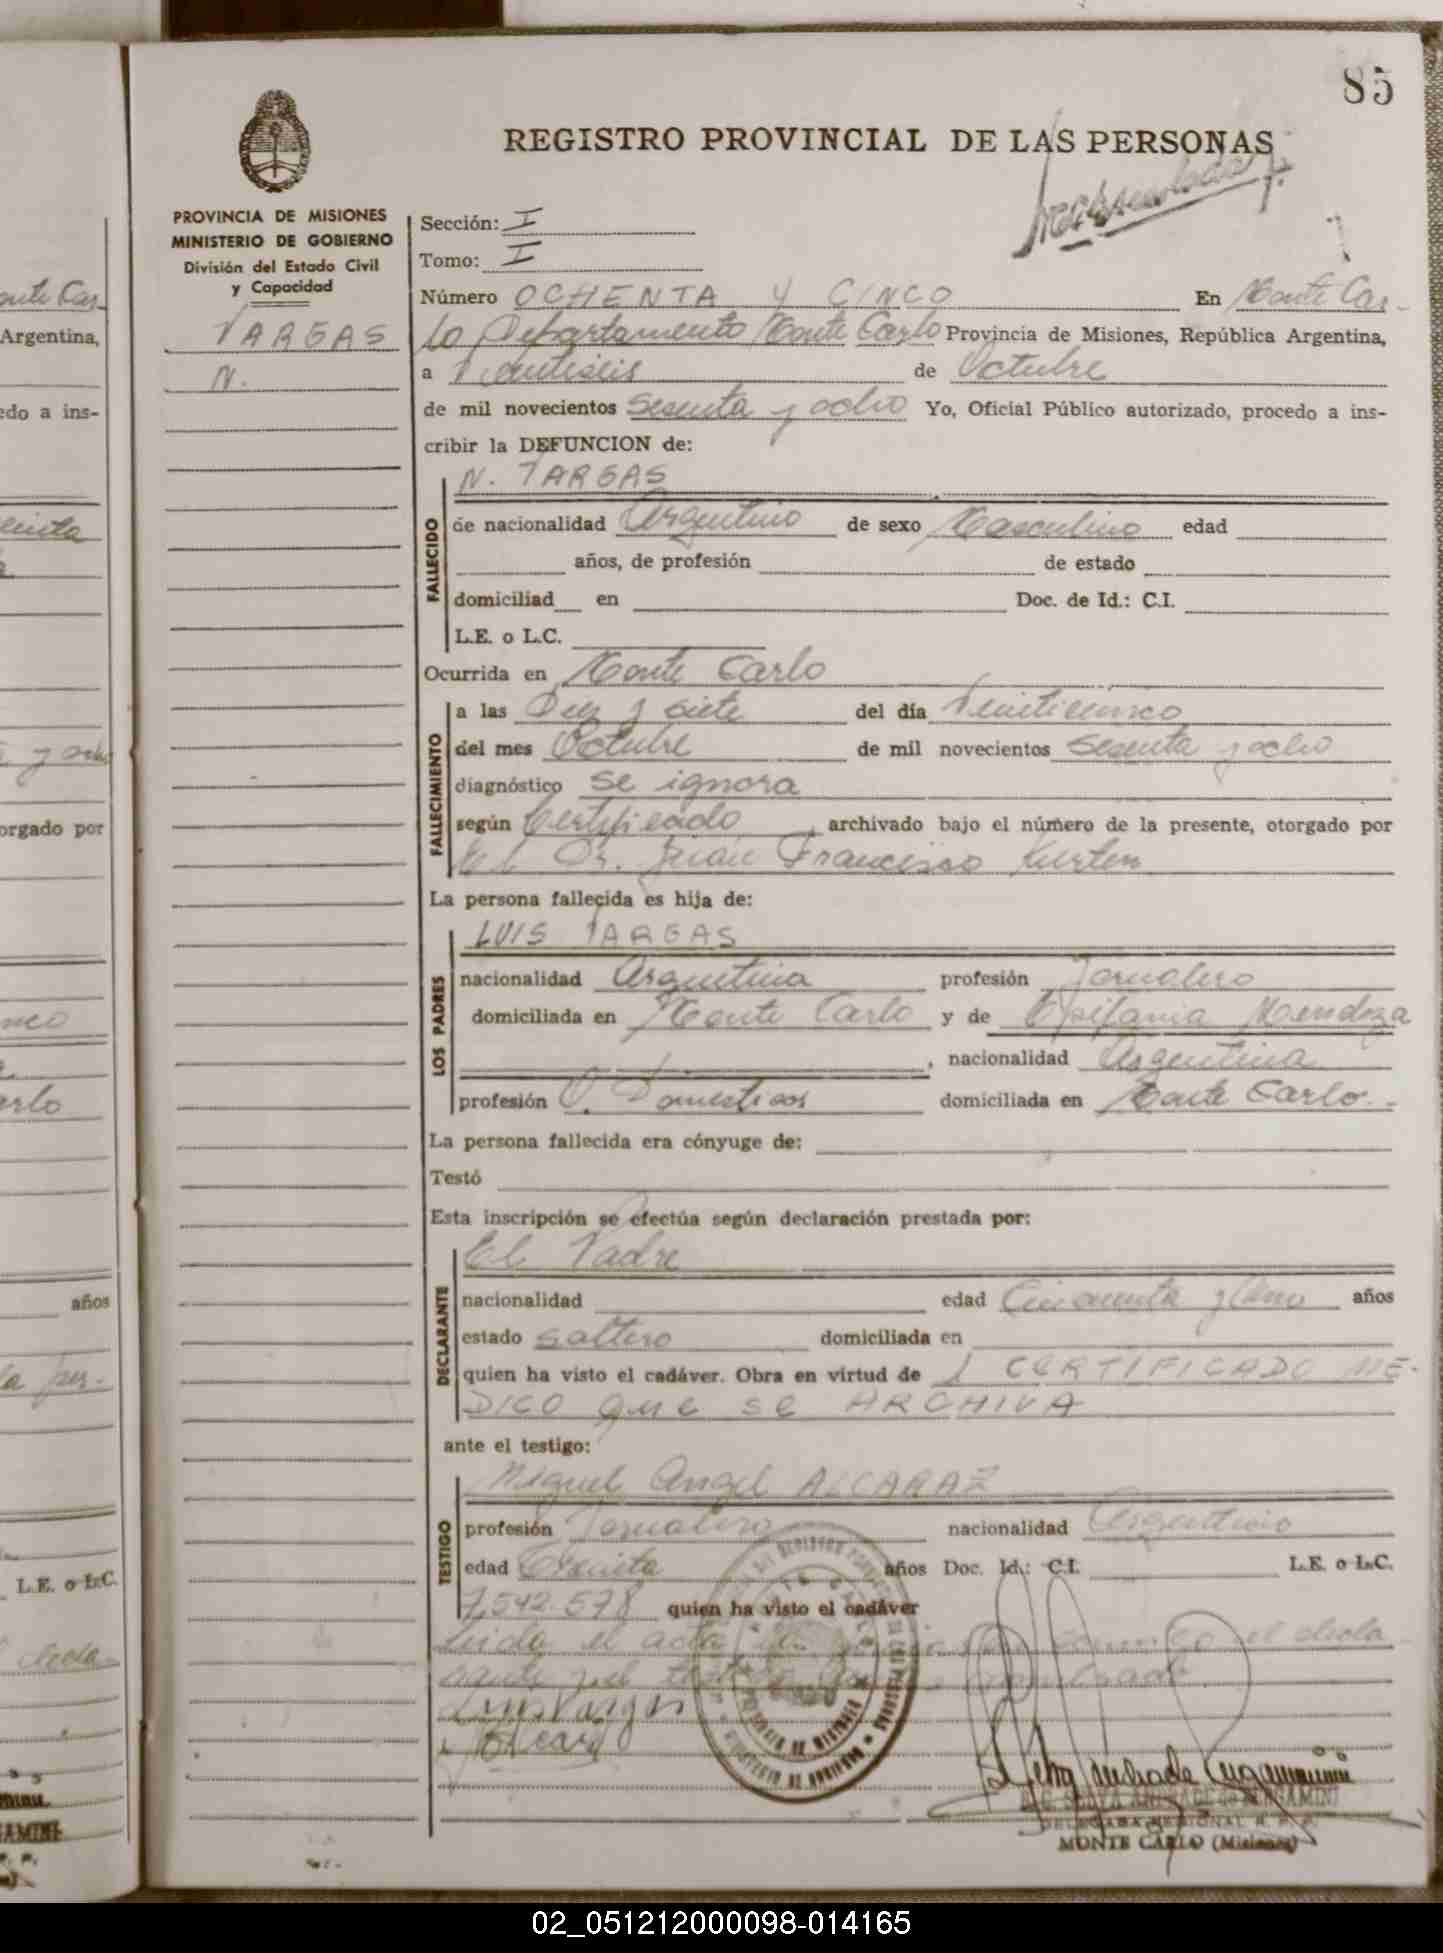 85
REGISTRO PROVINCIAL DE LAS PERSONAS
PROVINCIA DE MISIONES
MINISTERIO DE GOBIERNO
División del Estado Civil
y Capacidad
VARGAS
N.
Sección: I
Tomo: I
Número OCHENTA Y CINCO En Monte Car-
lo Departamento Monte Carlo Provincia de Misiones, República Argentina,
a Veintiseis de Octubre
de mil novecientos Sesenta y ocho Yo, Oficial Público autorizado, procedo a ins-
cribir la DEFUNCION de:
N. VARGAS
FALLECIDO
de nacionalidad Argentino de sexo Masculino edad
años, de profesión de estado
domiciliad en Doc. de Id.: C.I.
L.E. o L.C.
Ocurrida en Monte Carlo
FALLECIMIENTO
a las Diez y siete del día Veinticinco
del mes Octubre de mil novecientos Sesenta y ocho
diagnóstico se ignora
según Certificado, archivado bajo el número de la presente, otorgado por
El Dr. Juan Francisco Kursten
La persona fallecida es hija de:
LUIS VARGAS
LOS PADRES
nacionalidad Argentina profesión Jornalero
domiciliada en Monte Carlo y de Epifania Mendoza
, nacionalidad Argentina
profesión Q. Domesticos domiciliada en Monte Carlo.-
La persona fallecida era cónyuge de:
Testó
Esta inscripción se efectúa según declaración prestada por:
El Padre
DECLARANTE
nacionalidad edad Cincuenta y años
estado soltero domiciliada en
quien ha visto el cadáver. Obra en virtud de 1 CERTIFICADO ME-
DICO que se ARCHIVA
ante el testigo:
Miguel Angel ALCARAZ
TESTIGO
profesión Jornalero nacionalidad Argentino
edad Treinta años Doc. Id.: C.I. L.E. o L.C.
7.542.578 quien ha visto el cadáver
Leida el acta el decla
rante y el testigo
Luis Vargas
DELEGADA REGIONAL R. P. P.
MONTE CARLO (Misiones)
02_051212000098-014165